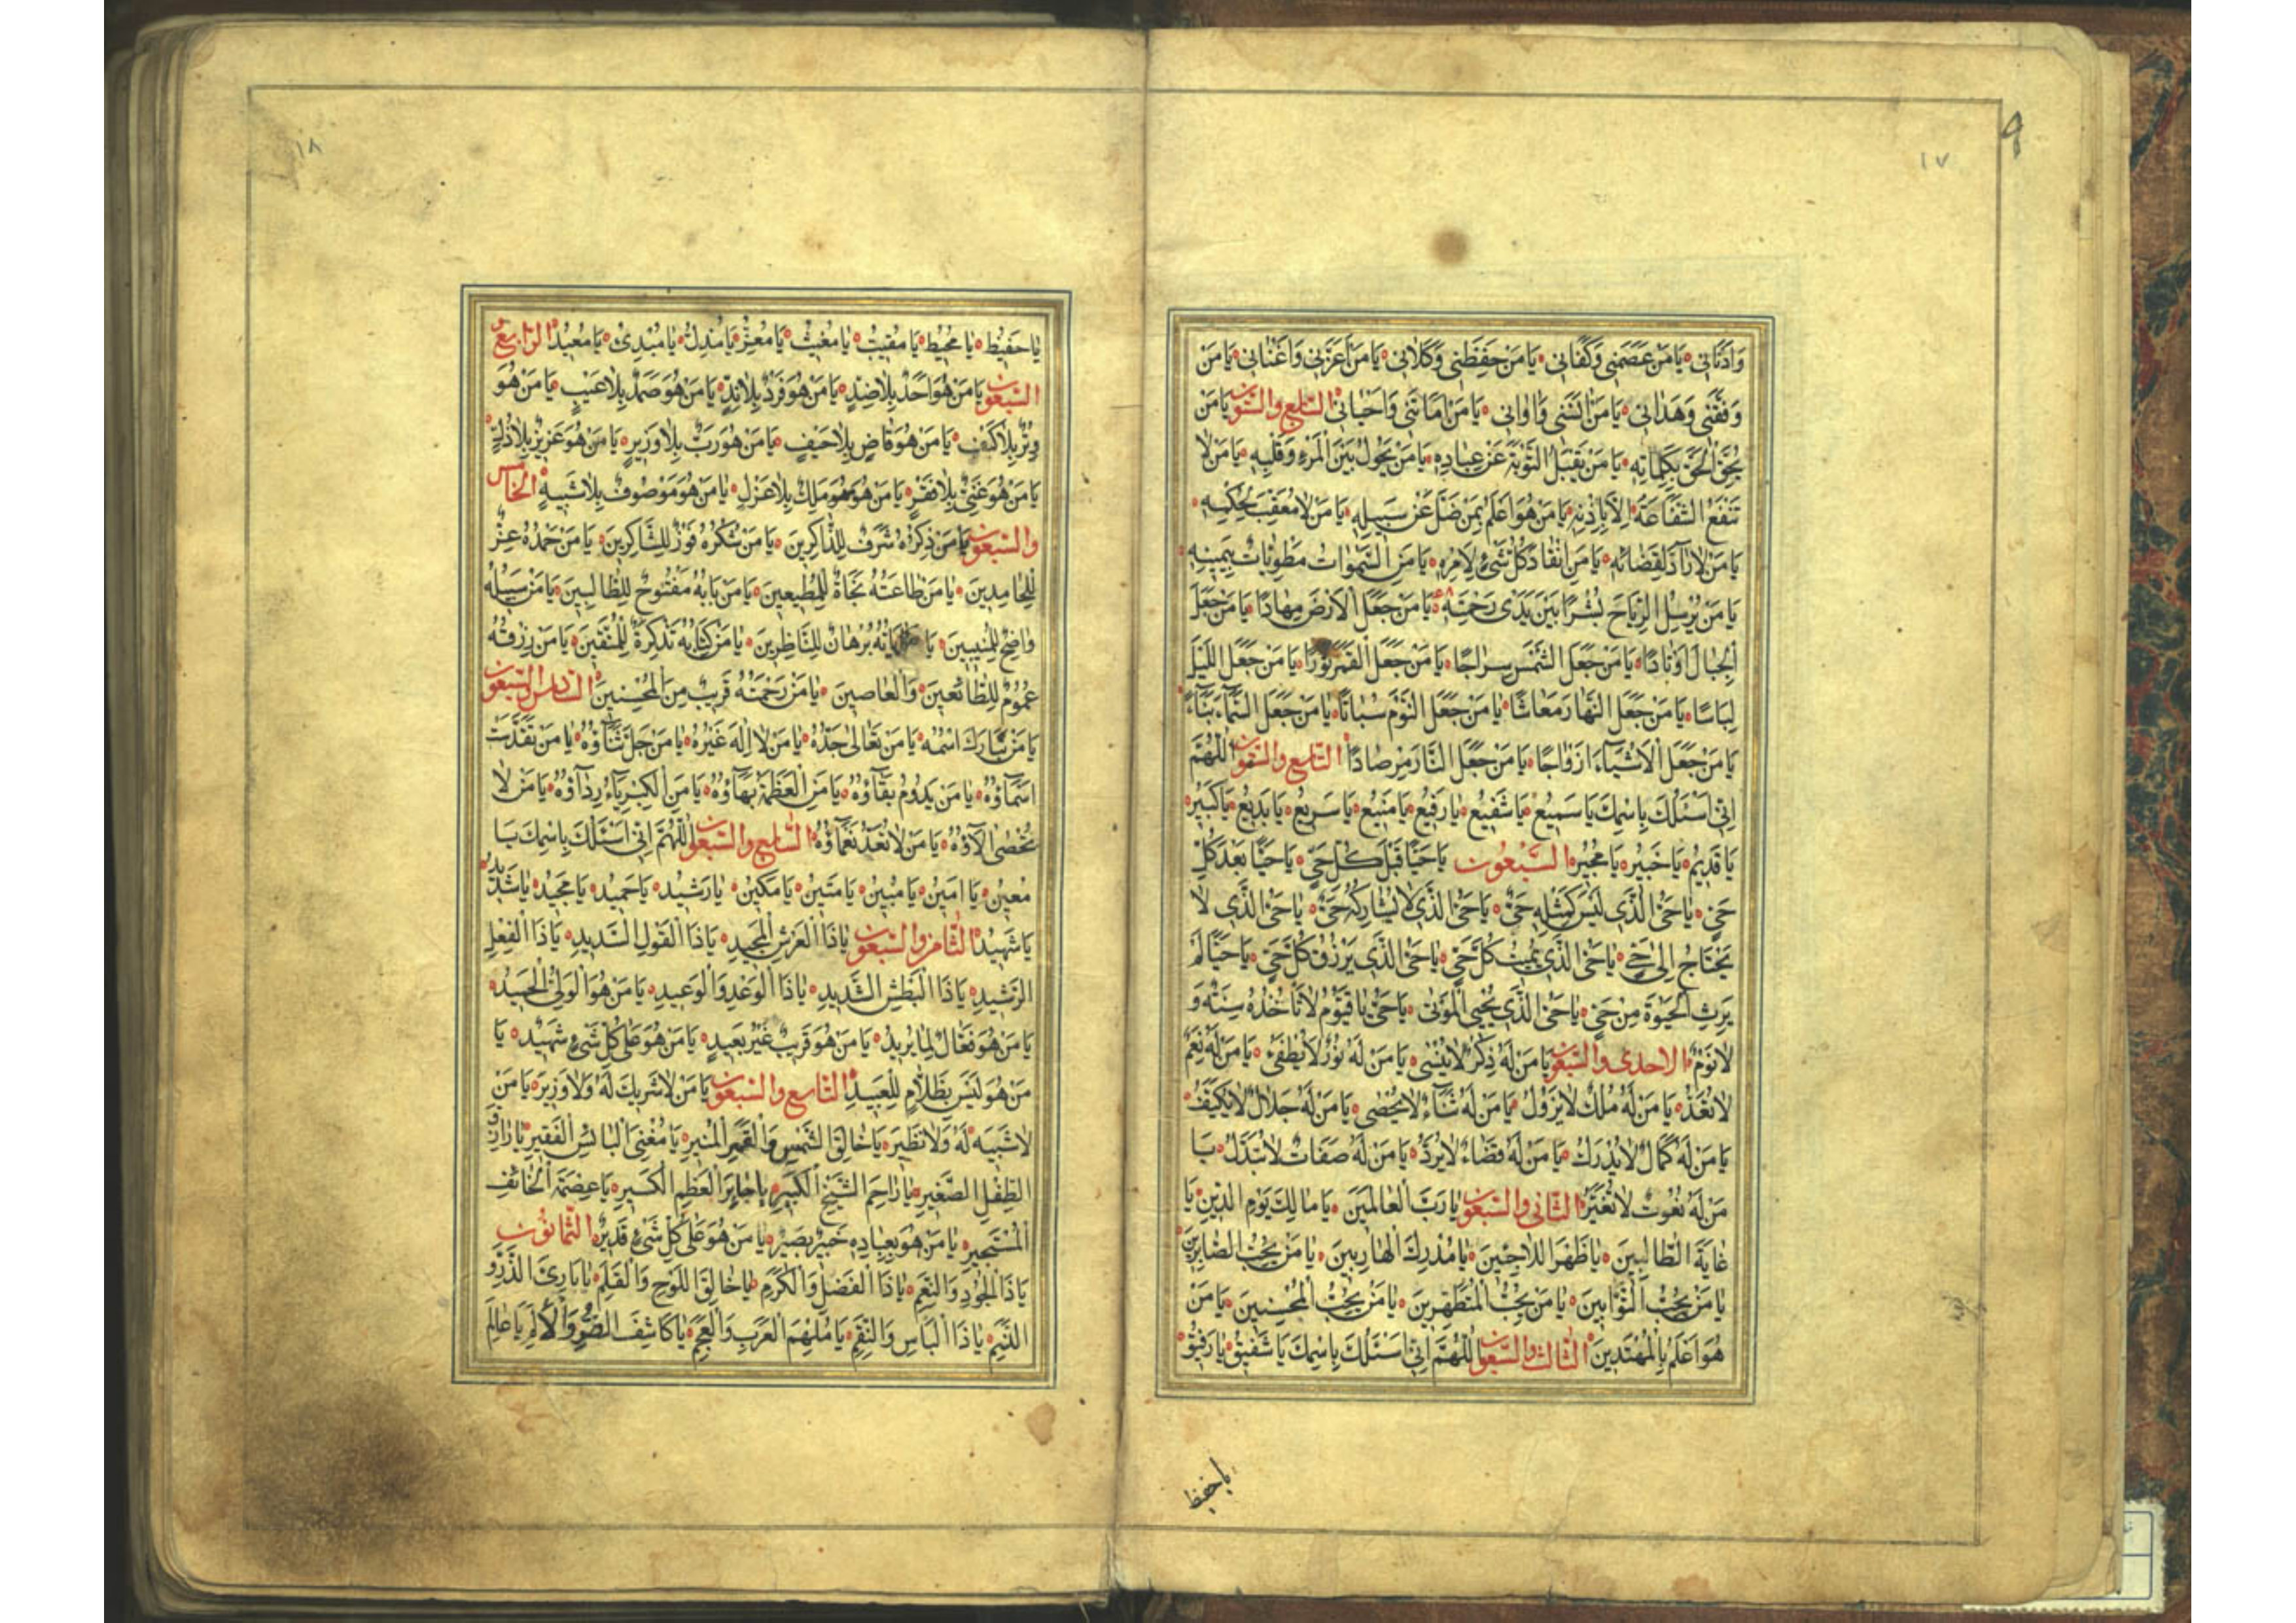 ٩
١٧
وَاَدْنَانِي يَا مَنْ عَصَمَنِي وَكَفَانِي يَا مَنْ حَفِظَنِي وَكَلَانِي يَا مَنْ اَعَزَّنِي وَاَغْنَانِي يَا مَنْ
وَفَّقَنِي وَهَدَانِي يَا مَنْ اٰنَسَنِي وَاٰوَانِي يَا مَنْ اَمَاتَنِي وَاَحْيَانِي يَا مَنْ
يُحِقُّ الْحَقَّ بِكَلِمَاتِهِ يَا مَنْ يَقْبَلُ التَّوْبَةَ عَنْ عِبَادِهِ يَا مَنْ يَحُولُ بَيْنَ الْمَرْءِ وَقَلْبِهِ يَا مَنْ لَا
تَنْفَعُ الشَّفَاعَةُ اِلَّا بِاِذْنِهِ يَا مَنْ هُوَ اَعْلَمُ بِمَنْ ضَلَّ عَنْ سَبِيلِهِ يَا مَنْ لَا مُعَقِّبَ لِحُكْمِهِ
يَا مَنْ لَا رَآدَّ لِقَضَائِهِ يَا مَنِ انْقَادَ كُلُّ شَيْءٍ لِاَمْرِهِ يَا مَنِ السَّمٰوَاتُ مَطْوِيَّاتٌ بِيَمِينِهِ
يَا مَنْ يُرْسِلُ الرِّيَاحَ بُشْرًا بَيْنَ يَدَيْ رَحْمَتِهِ يَا مَنْ جَعَلَ الْاَرْضَ مِهَادًا يَا مَنْ جَعَلَ
الْجِبَالَ اَوْتَادًا يَا مَنْ جَعَلَ الشَّمْسَ سِرَاجًا يَا مَنْ جَعَلَ الْقَمَرَ نُورًا يَا مَنْ جَعَلَ اللَّيْلَ
لِبَاسًا يَا مَنْ جَعَلَ النَّهَارَ مَعَاشًا يَا مَنْ جَعَلَ النَّوْمَ سُبَاتًا يَا مَنْ جَعَلَ السَّمَآءَ بِنَآءً
يَا مَنْ جَعَلَ الْاَشْيَآءَ اَزْوَاجًا يَا مَنْ جَعَلَ النَّارَ مِرْصَادًا اَللّٰهُمَّ
اِنِّي اَسْئَلُكَ بِاسْمِكَ يَا سَمِيعُ يَا شَفِيعُ يَا رَفِيعُ يَا مَنِيعُ يَا سَرِيعُ يَا بَدِيعُ يَا كَبِيرُ
يَا قَدِيرُ يَا خَبِيرُ يَا مُجِيرُ السَّبْعُونَ يَا حَيًّا قَبْلَ كُلِّ حَيٍّ يَا حَيًّا بَعْدَ كُلِّ
حَيٍّ يَا حَيُّ الَّذِي لَيْسَ كَمِثْلِهِ حَيٌّ يَا حَيُّ الَّذِي لَا يُشَارِكُهُ حَيٌّ يَا حَيُّ الَّذِي لَا
يَحْتَاجُ اِلٰى حَيٍّ يَا حَيُّ الَّذِي يُمِيتُ كُلَّ حَيٍّ يَا حَيُّ الَّذِي يَرْزُقُ كُلَّ حَيٍّ يَا حَيًّا لَمْ
يَرِثِ الْحَيٰوةَ مِنْ حَيٍّ يَا حَيُّ الَّذِي يُحْيِي الْمَوْتٰى يَا حَيُّ يَا قَيُّومُ لَا تَاْخُذُهُ سِنَةٌ وَ
لَا نَوْمٌ الاحدى والسبعون يَا مَنْ لَهُ ذِكْرٌ لَا يُنْسٰى يَا مَنْ لَهُ نُورٌ لَا يُطْفٰى يَا مَنْ لَهُ نِعَمٌ
لَا تُعَدُّ يَا مَنْ لَهُ مُلْكٌ لَا يَزُولُ يَا مَنْ لَهُ ثَنَآءٌ لَا يُحْصٰى يَا مَنْ لَهُ جَلَالٌ لَا يُكَيَّفُ
يَا مَنْ لَهُ كَمَالٌ لَا يُدْرَكُ يَا مَنْ لَهُ قَضَاءٌ لَا يُرَدُّ يَا مَنْ لَهُ صِفَاتٌ لَا تُبَدَّلُ يَا
مَنْ لَهُ نُعُوتٌ لَا تُغَيَّرُ الثانى والسبعون يَا رَبَّ الْعَالَمِينَ يَا مَالِكَ يَوْمِ الدِّينِ يَا
غَايَةَ الطَّالِبِينَ يَا ظَهْرَ اللَّاجِئِينَ يَا مُدْرِكَ الْهَارِبِينَ يَا مَنْ يُحِبُّ الصَّابِرِينَ
يَا مَنْ يُحِبُّ التَّوَّابِينَ يَا مَنْ يُحِبُّ الْمُتَطَهِّرِينَ يَا مَنْ يُحِبُّ الْمُحْسِنِينَ يَا مَنْ
هُوَ اَعْلَمُ بِالْمُهْتَدِينَ الثالث والسبعون اَللّٰهُمَّ اِنِّي اَسْئَلُكَ بِاسْمِكَ يَا شَفِيقُ يَا رَفِيقُ
يا حفيظ
١٨
يَا حَفِيظُ يَا مُحِيطُ يَا مُقِيتُ يَا مُغِيثُ يَا مُعِزُّ يَا مُذِلُّ يَا مُبْدِئُ يَا مُعِيدُ الرابع
السبعون يَا مَنْ هُوَ اَحَدٌ بِلَا ضِدٍّ يَا مَنْ هُوَ فَرْدٌ بِلَا نِدٍّ يَا مَنْ هُوَ صَمَدٌ بِلَا عَيْبٍ يَا مَنْ هُوَ
وِتْرٌ بِلَا كَيْفٍ يَا مَنْ هُوَ قَاضٍ بِلَا حَيْفٍ يَا مَنْ هُوَ رَبٌّ بِلَا وَزِيرٍ يَا مَنْ هُوَ عَزِيزٌ بِلَا ذُلٍّ
يَا مَنْ هُوَ غَنِيٌّ بِلَا فَقْرٍ يَا مَنْ هُوَ مَلِكٌ بِلَا عَزْلٍ يَا مَنْ هُوَ مَوْصُوفٌ بِلَا شَبِيهٍ الخامس
والسبعون يَا مَنْ ذِكْرُهُ شَرَفٌ لِلذَّاكِرِينَ يَا مَنْ شُكْرُهُ فَوْزٌ لِلشَّاكِرِينَ يَا مَنْ حَمْدُهُ عِزٌّ
لِلْحَامِدِينَ يَا مَنْ طَاعَتُهُ نَجَاةٌ لِلْمُطِيعِينَ يَا مَنْ بَابُهُ مَفْتُوحٌ لِلطَّالِبِينَ يَا مَنْ سَبِيلُهُ
وَاضِحٌ لِلْمُنِيبِينَ يَا اٰيَاتُهُ بُرْهَانٌ لِلنَّاظِرِينَ يَا مَنْ كِتَابُهُ تَذْكِرَةٌ لِلْمُتَّقِينَ يَا مَنْ رِزْقُهُ
عُمُومٌ لِلطَّائِعِينَ وَالْعَاصِينَ يَا مَنْ رَحْمَتُهُ قَرِيبٌ مِنَ الْمُحْسِنِينَ السادس والسبعون
يَا مَنْ تَبَارَكَ اسْمُهُ يَا مَنْ تَعَالٰى جَدُّهُ يَا مَنْ لَا اِلٰهَ غَيْرُهُ يَا مَنْ جَلَّ ثَنَآؤُهُ يَا مَنْ تَقَدَّسَتْ
اَسْمَآؤُهُ يَا مَنْ يَدُومُ بَقَآؤُهُ يَا مَنِ الْعَظَمَةُ بَهَآؤُهُ يَا مَنِ الْكِبْرِيَآءُ رِدَآؤُهُ يَا مَنْ لَا
تُحْصٰى اٰلَاؤُهُ يَا مَنْ لَا تُعَدُّ نَعْمَآؤُهُ السابع والسبعون اَللّٰهُمَّ اِنِّي اَسْئَلُكَ بِاسْمِكَ يَا
مُعِينُ يَا اَمِينُ يَا مُبِينُ يَا مَتِينُ يَا مَكِينُ يَا رَشِيدُ يَا حَمِيدُ يَا مَجِيدُ يَا شَدِيدُ
يَا شَهِيدُ الثامن والسبعون يَا ذَا الْعَرْشِ الْمَجِيدِ يَا ذَا الْقَوْلِ السَّدِيدِ يَا ذَا الْفِعْلِ
الرَّشِيدِ يَا ذَا الْبَطْشِ الشَّدِيدِ يَا ذَا الْوَعْدِ وَالْوَعِيدِ يَا مَنْ هُوَ الْوَلِيُّ الْحَمِيدُ
يَا مَنْ هُوَ فَعَّالٌ لِمَا يُرِيدُ يَا مَنْ هُوَ قَرِيبٌ غَيْرُ بَعِيدٍ يَا مَنْ هُوَ عَلٰى كُلِّ شَيْءٍ شَهِيدٌ يَا
مَنْ هُوَ لَيْسَ بِظَلَّامٍ لِلْعَبِيدِ التاسع والسبعون يَا مَنْ لَا شَرِيكَ لَهُ وَلَا وَزِيرَ يَا مَنْ
لَا شَبِيهَ لَهُ وَلَا نَظِيرَ يَا خَالِقَ الشَّمْسِ وَالْقَمَرِ الْمُنِيرِ يَا مُغْنِيَ الْبَائِسِ الْفَقِيرِ يَا رَازِقَ
الطِّفْلِ الصَّغِيرِ يَا رَاحِمَ الشَّيْخِ الْكَبِيرِ يَا جَابِرَ الْعَظْمِ الْكَسِيرِ يَا عِصْمَةَ الْخَائِفِ
الْمُسْتَجِيرِ يَا مَنْ هُوَ بِعِبَادِهِ خَبِيرٌ بَصِيرٌ يَا مَنْ هُوَ عَلٰى كُلِّ شَيْءٍ قَدِيرٌ الثمانون
يَا ذَا الْجُودِ وَالنِّعَمِ يَا ذَا الْفَضْلِ وَالْكَرَمِ يَا خَالِقَ اللَّوْحِ وَالْقَلَمِ يَا بَارِئَ الذَّرِّ وَ
النَّسَمِ يَا ذَا الْبَاْسِ وَالنِّقَمِ يَا مُلْهِمَ الْعَرَبِ وَالْعَجَمِ يَا كَاشِفَ الضُّرِّ وَالْاَلَمِ يَا عَالِمَ